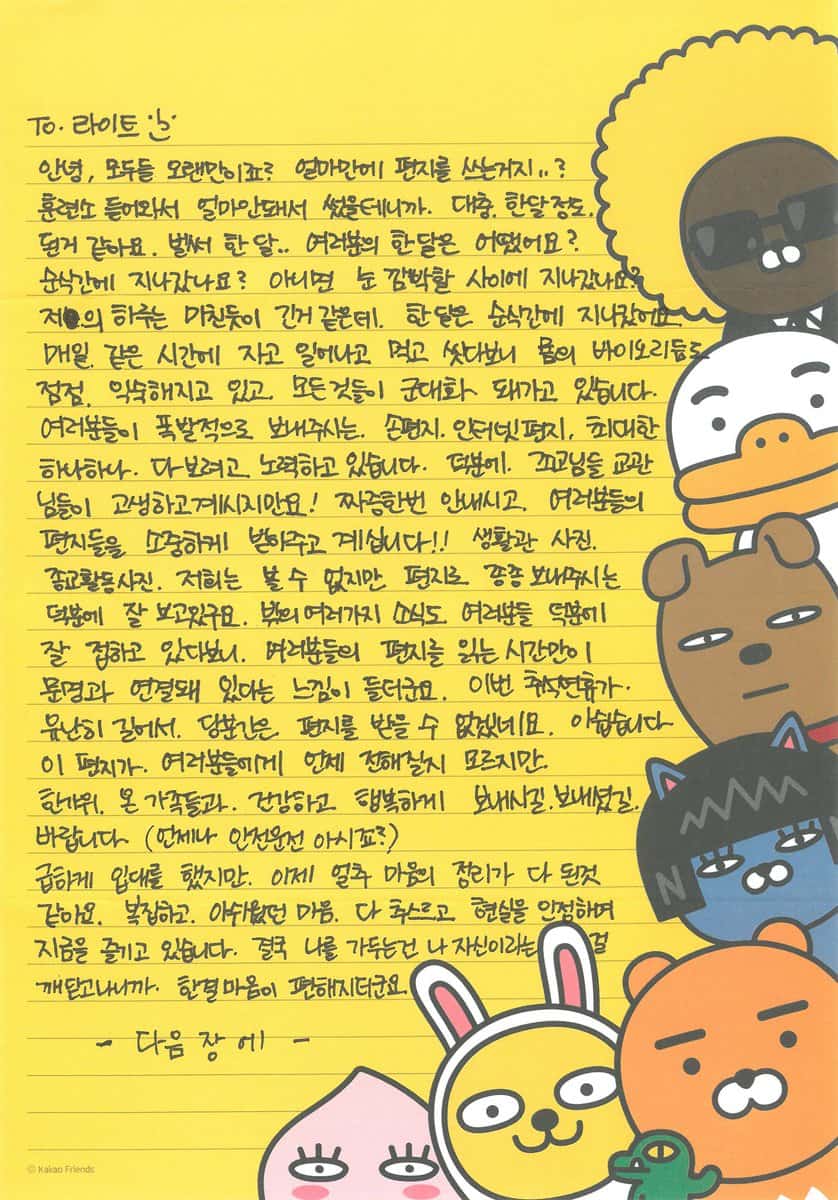 To. 라이트
안녕, 모두들 오랜만이죠? 얼마만에 편지를 쓰는거지..?
훈련소 들어와서 얼마안돼서 썼을테니까. 대충. 한달정도.
된거 같아요. 벌써 한달.. 여러분의 한달은 어땠어요?
순식간에 지나갔나요? 아니면 눈 깜빡할 사이에 지나갔나요?
저의 하루는 미친듯이 긴거같은데. 한달은 순식간에 지나갔어요
매일. 같은 시간에 자고 일어나고 먹고 씻다보니 몸의 바이오리듬도
점점. 익숙해지고 있고. 모든것들이 군대화 돼가고 있습니다.
여러분들이 폭발적으로 보내주시는. 손편지. 인터넷편지, 최대한
하나하나. 다보려고 노력하고 있습니다. 덕분에. 조교님들 교관
님들이 고생하고계시지만요! 짜증한번 안내시고. 여러분들의
편지들을 소중하게 받아주고 계십니다!! 생활관 사진.
종교활동사진. 저희는 볼 수 없지만 편지로 종종 보내주시는
덕분에 잘 보고있구요. 밖의 여러가지 소식도 여러분들 덕분에
잘 접하고 있다보니. 여러분들의 편지를 읽는 시간만이
문명과 연결돼 있다는 느낌이 들더군요. 이번 추석연휴가.
유난히 길어서. 당분간은 편지를 받을 수 없겠네요. 아쉽습니다
이 편지가. 여러분들에게 언제 전해질지 모르지만.
한가위. 온 가족들과. 건강하고 행복하게 보내시길. 보내셨길.
바랍니다 (언제나 안전운전 아시죠?)
급하게 입대를 했지만. 이제 얼추 마음의 정리가 다 된것
같아요. 복잡하고. 아쉬웠던 마음. 다 추스르고 현실을 인정하며
지금을 즐기고 있습니다. 결국 나를 가두는건 나 자신이라는 걸
깨닫고나니까. 한결마음이 편해지더군요.
- 다음 장 에 -
© Kakao Friends